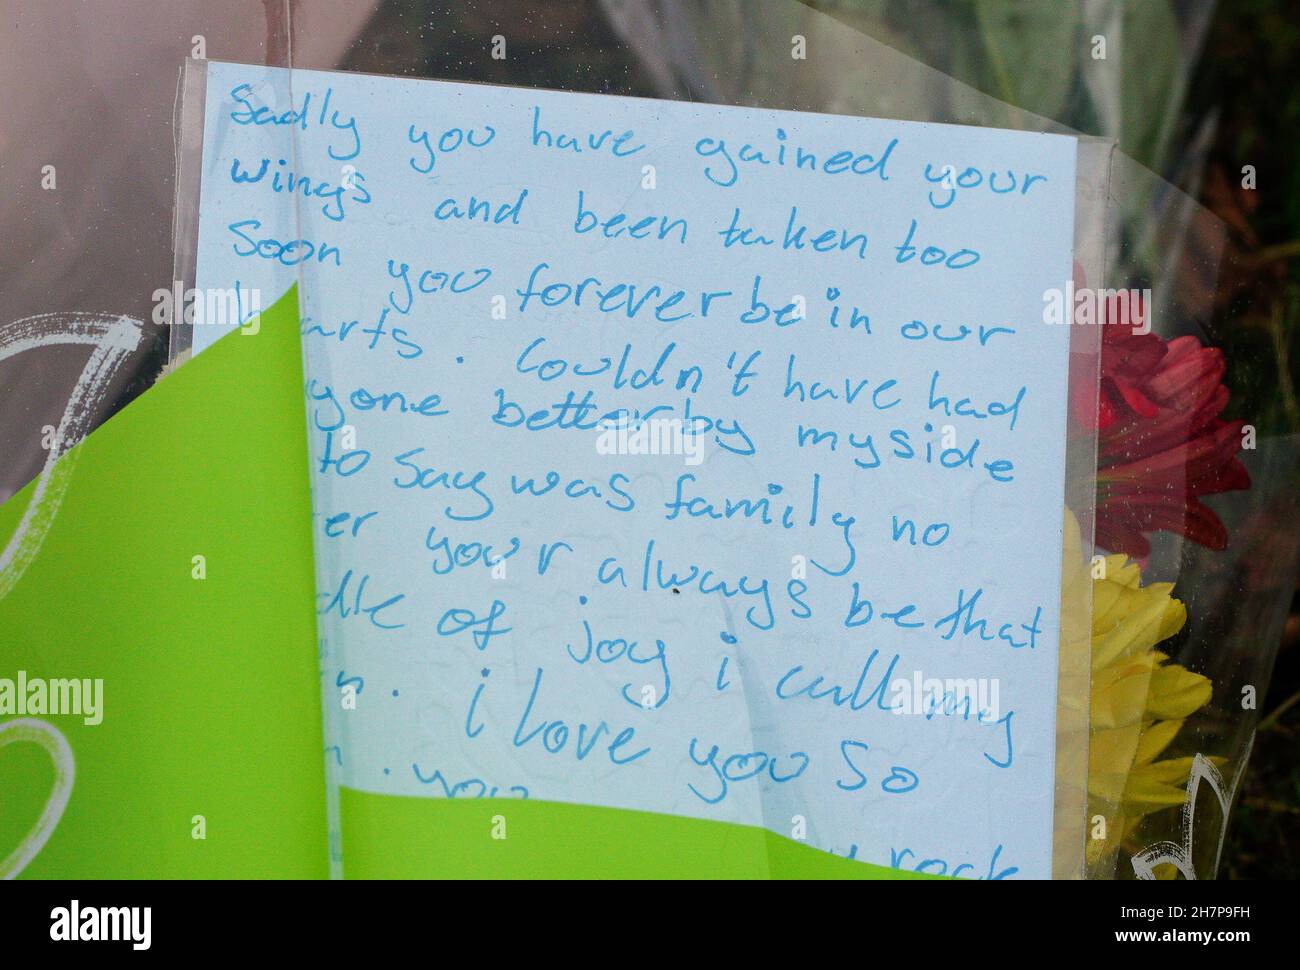 Sadly you have gained your
wings and been taken too
Soon you forever be in our
hearts. Couldn't have had
better by my side
to say was family no
you'r always be that
of joy i call my
i love you so
you
rock
alamy
Image ID: 2H7P9FH
www.alamy.com